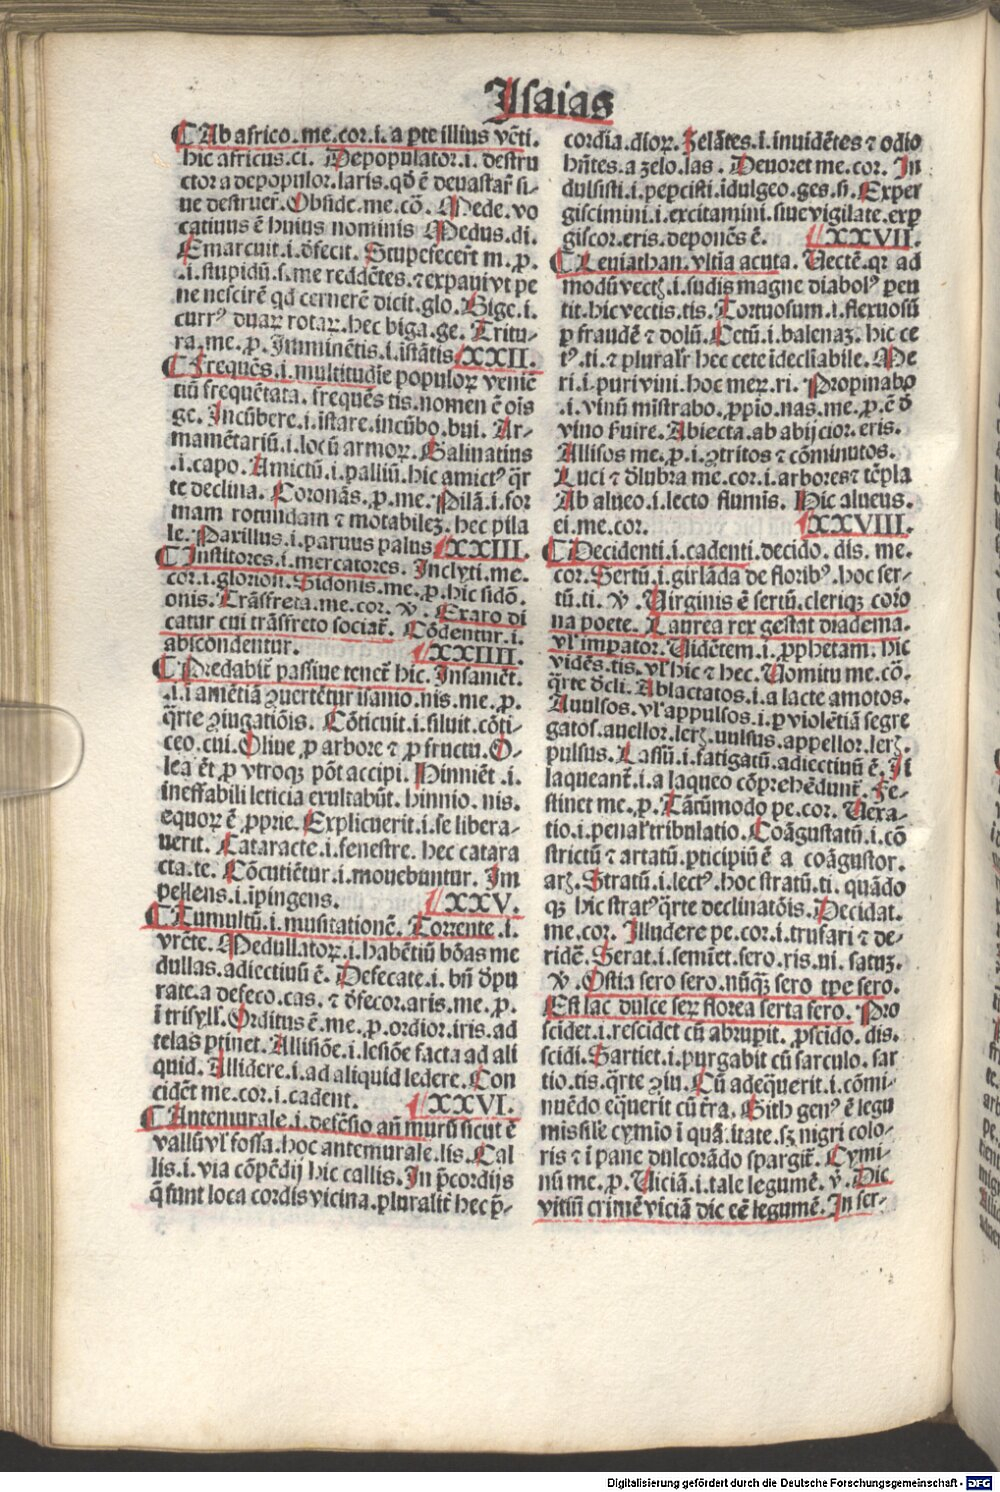 Isaias
¶ Ab africo.me.cor.i.a ꝑte illius vẽti.
hic africus.ci. Depopulator.i.destru
ctor a depopulor.laris.qđ ē deuastar̄ si-
ue destruer̄. Obside.me.cō. Mede.vo
catiuus ē huius nominis Medus.di.
Emarcuit.i.đfecit. Stupefecerūt m.ꝑ.
.i.stupidū.s.me reddētes.⁊ expauiut pe
ne nescirē qđ cernerē dicit.glo. Bige.i.
currꝰ duaꝝ rotaꝝ.hec biga.ge. Tritu-
ra.me.ꝑ. Imminētis.i.istātis XXII.
¶ Frequēs.i.multitudīe populoꝝ veniē
tiū frequētata. frequēs tis.nomen ē oīs
ge. Incūbere.i.istare.incūbo.bui. Ar-
mamētariū.i.locū armoꝝ. Galinatius
.i.capo. Amictū.i.palliū.hic amictꝰ q̄r
te declina. Coronās.ꝑ.me. Pilā.i.for
mam rotundam ⁊ motabileꝫ. hec pila
le. Paxillus.i.paruus palus XXIII.
¶ Institores.i.mercatores. Inclyti.me.
cor.i.gloriosi. Sidonis.me.ꝑ.hic sidō.
onis. Trāsfreta.me.cor. ꝟ. Exaro di
catur cui trāsfreto sociat̄. Cōdentur.i.
abscondentur. XXIIII.
¶ Predabit̄ passiue tenet̄ hic. Insaniēt.
.i.i amētiā ꝯuertētur isanio.nis.me.ꝑ.
q̄rte ꝯiugatiōis. Cōticuit.i.siluit.cōti-
ceo.cui. Oliue ꝑ arbore ⁊ ꝑ fructu. O-
lea ēt ꝑ vtroqꝫ pōt accipi. Hinniēt .i.
ineffabili leticia exultabūt. hinnio. nis.
equoꝝ ē ꝓprie. Explicuerit.i.se libera-
uerit. Cataracte.i.fenestre. hec catara
cta.te. Cōcutiētur.i.mouebuntur. Im
pellens.i.ipingens. XXV.
¶ Tumultū.i.musitationē. Torrente .i.
vrēte. Medullatoꝝ.i.habētiū bōas me
dullas.adiectiuū ē. Defecate.i. bn̄ đpu
rate.a defeco.cas. ⁊ đfecor.aris.me.ꝑ.
i trisyll̄. Orditus ē.me.ꝑ.ordior.iris.ad
telas ꝑtinet. Allisiōe.i.lesiōe facta ad ali
quid. Allidere.i.ad aliquid ledere. Con
cidēt me.cor.i.cadent. XXVI.
¶ Antemurale.i.defēsio an̄ murū sicut ē
vallū vl̓ fossa.hoc antemurale.lis. Cal
lis.i.via cōpēdij hic callis. In p̄cordijs
q̄ sunt loca cordis vicina.pluralit̄ hec p̄-
cordia.dioꝝ. Zelātes.i.inuidētes ⁊ odio
hn̄tes.a zelo.las. Deuoret me.cor. In
dulsisti.i.peꝑcisti.idulgeo.ges.si. Exper
giscimini.i.excitamini.siue vigilate.exꝑ
giscor.eris.deponēs ē. XXVII.
¶ Leuiathan.vltia acuta. Uectē.qꝛ ad
modū vectꝭ.i.sudis magne diabolꝰ peu
tit.hic vectis.tis. Tortuosum.i.flexuosū
ꝑ fraudē ⁊ dolū. Cetū.i.balenaꝫ. hic ce
tꝰ.ti.⁊ plurar̄ hec cete idecliabile. Me
ri.i.puri vini.hoc meꝝ.ri. Propinabo
.i.vinū mistrabo.ꝓpio.nas.me.ꝑ.ē đ
vino ẜuire. Abiecta.ab abijcior.eris.
Allisos me.ꝑ.i.ꝯtritos ⁊ cōminutos.
Luci ⁊ đlubra me.cor.i.arbores ⁊ tēpla
Ab alueo.i.lecto flumīs. Hic alueus.
ei.me.cor. XXVIII.
¶ Decidenti.i.cadenti.decido. dis. me.
cor. Sertū.i.girlāda de floribꝰ.hoc ser-
tū.ti. ꝟ. Uirginis ē sertū.cleriqꝫ coro
na poete. Laurea rex gestat diadema.
vl̓ imꝑator. Uidētem.i.ꝓphetam. hic
vidēs.tis.vl̓ hic ⁊ hec. Uomitu me.cō.
q̄rte đcli. Ablactatos.i.a lacte amotos.
Auulsos.vl̓ appulsos.i.ꝑ violētiā segre
gatos.auellor.lerꝭ.uulsus.appellor.lerꝭ.
pulsus. Lassū.i.fatigatū.adiectiuū ē. Il
laqueant̄.i.a laqueo cōprehēdunt̄. Fe-
stinet me.ꝑ. Tātūmodo pe.cor. Uexa-
tio.i.penar̄ tribulatio. Coāgustatū.i.cō
strictū ⁊ artatū.ꝑticipiū ē a coāgustor.
arꝭ. Stratū.i.lectꝰ.hoc stratū.ti. quādo
qꝫ hic stratꝰ q̄rte declinatōis. Decidat.
me.cor. Illudere pe.cor.i.trufari ⁊ de-
ridē. Serat.i.semiet.sero.ris.ui.satuꝫ.
ꝟ. Ostia sero sero.nūqꝫ sero tꝑe sero.
Est lac dulce seꝝ florea serta sero. Pro
scidet.i.rescidet cū abruꝑit.ꝓscido.dis.
scidi. Sartiet.i.purgabit cū sarculo.sar
tio.tis.q̄rte ꝯiu. Cū adeq̄uerit.i.cōmi-
nuēdo eq̄uerit cū tr̄a. Gith genꝰ ē legu
mis sil̓e cymio i quā.itate.sꝫ nigri colo-
ris ⁊ i pane dulcorādo spargit̄. Cymi-
nū me.ꝑ. Uiciā.i.tale legumē. ꝟ. Dic
vitiū crimē viciā dic eē legumē. In ser-
Digitalisierung gefördert durch die Deutsche Forschungsgemeinschaft - DFG